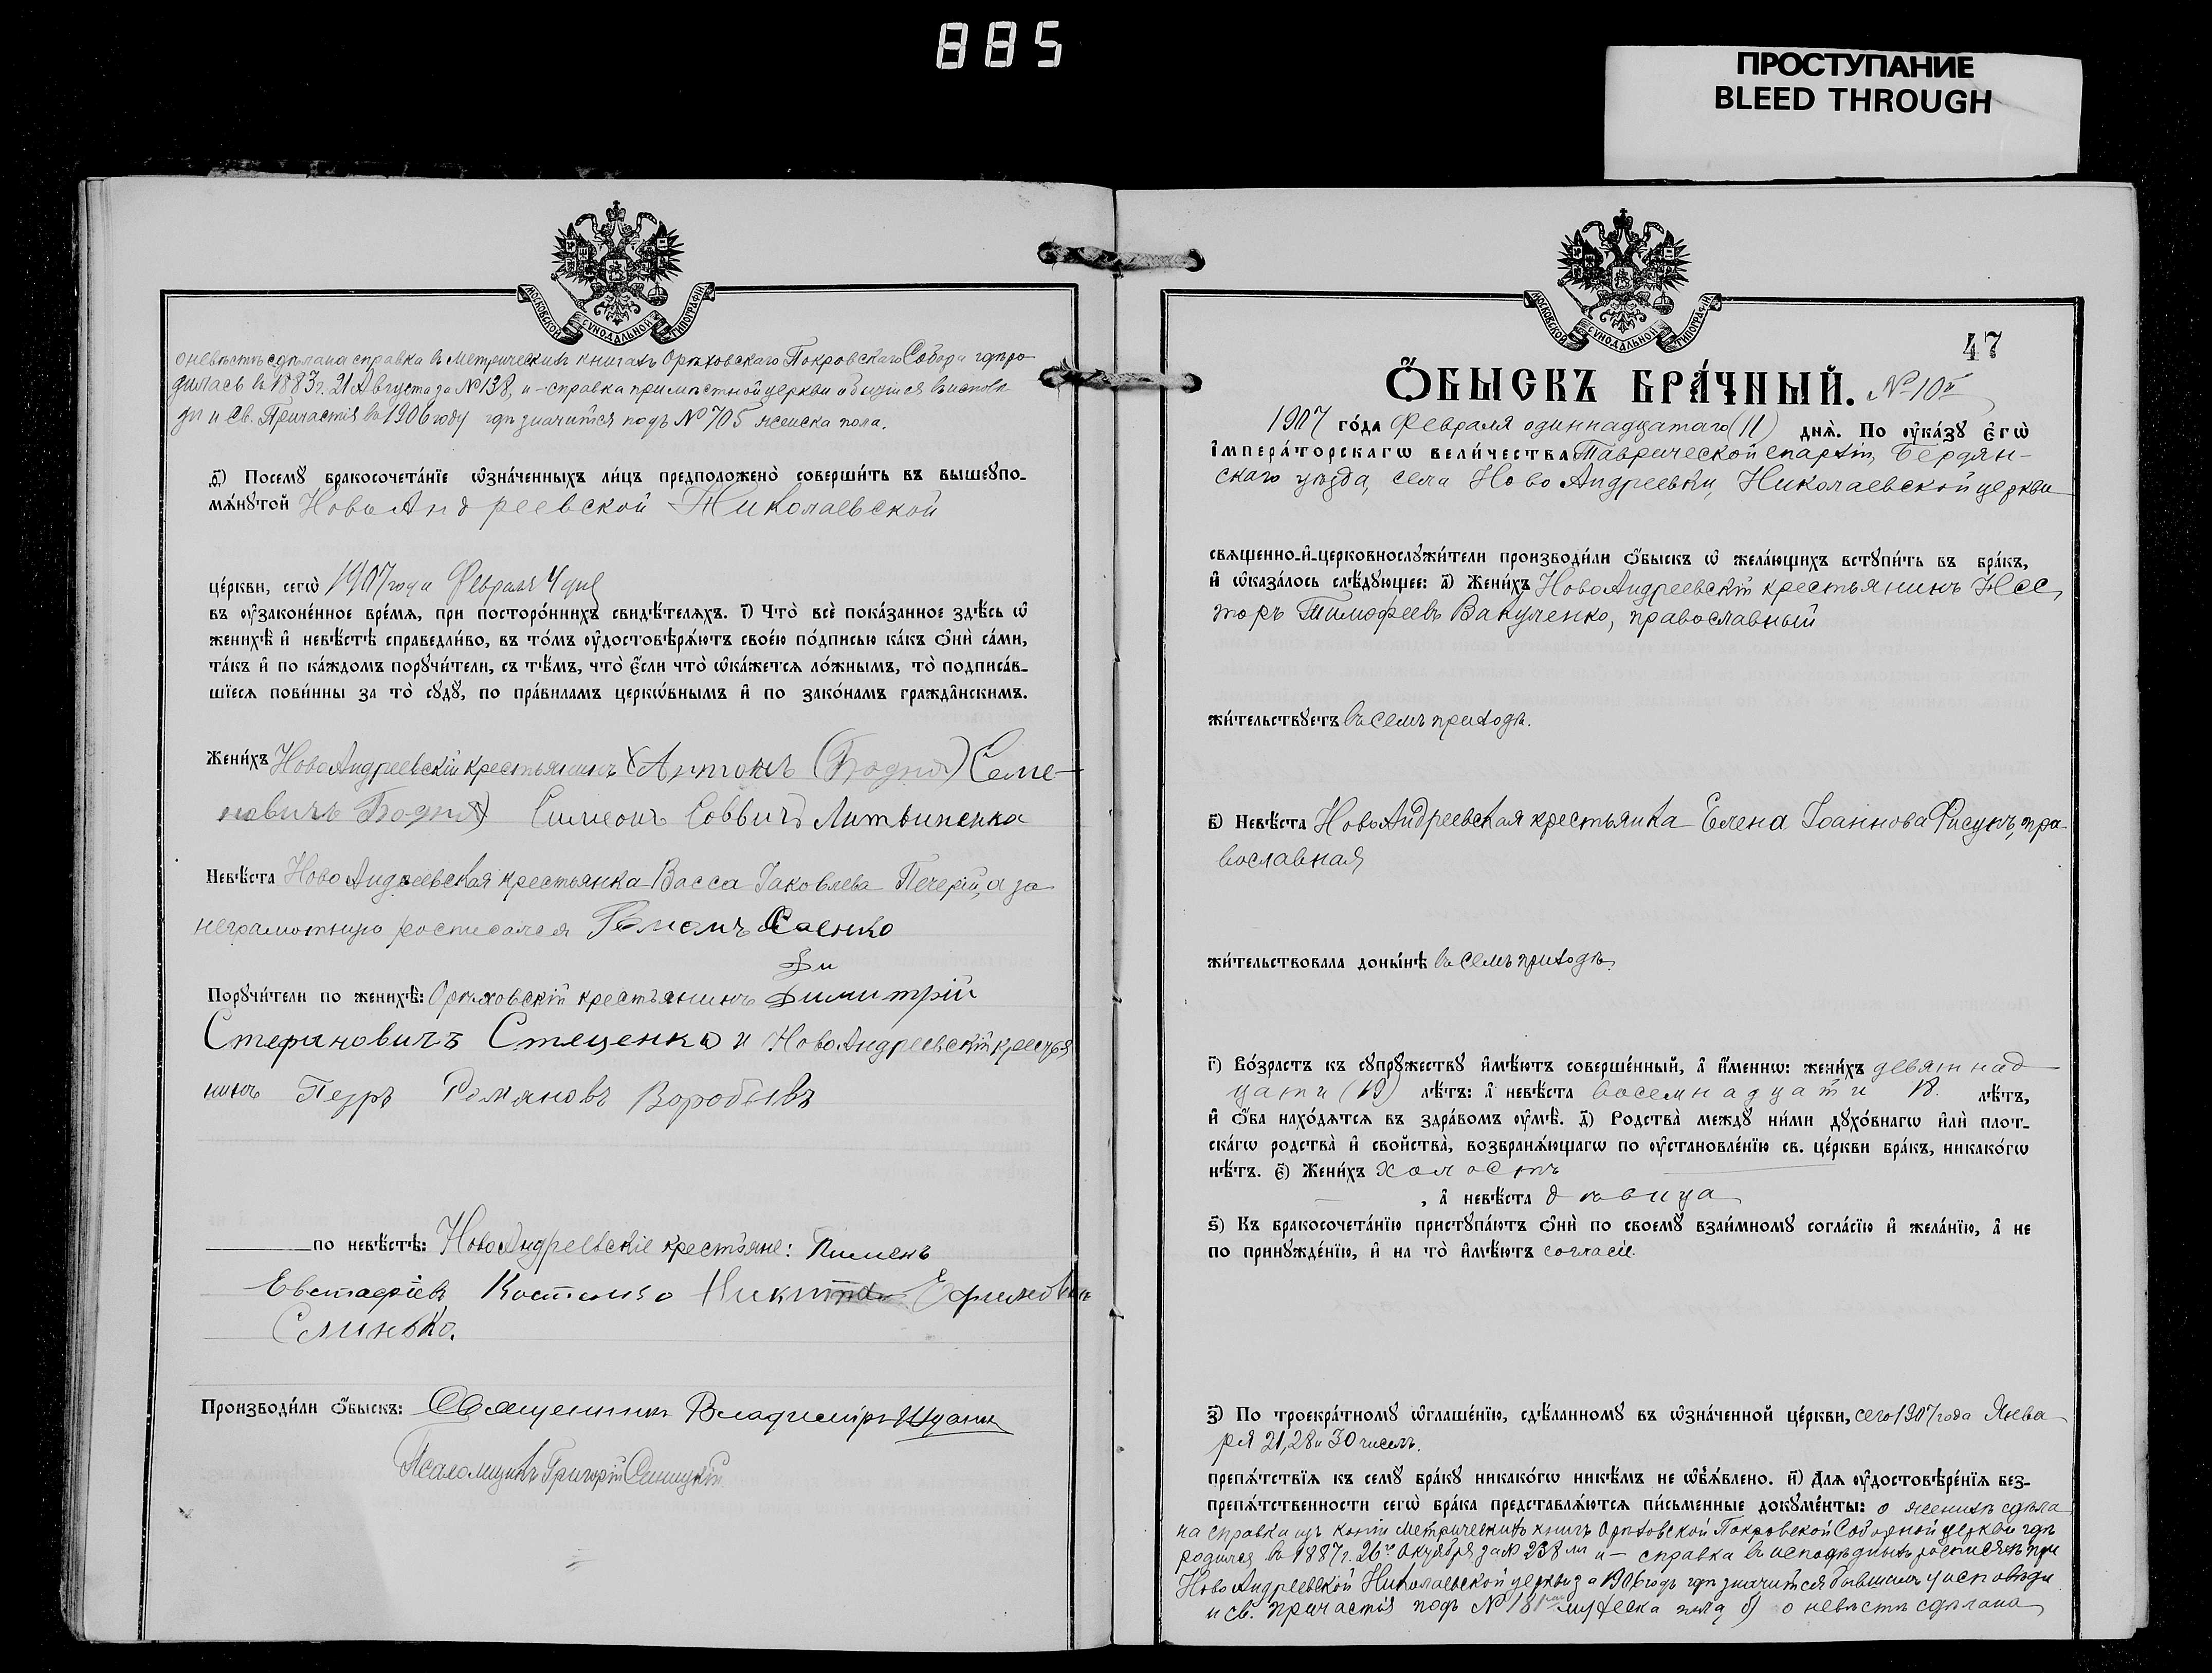 885
ПРОСТУПАНИЕ
BLEED THROUGH
МОСКОВСКОЙ СУНОДАЛЬНОЙ ТИПОГРАФІИ
о невѣстѣ сдѣлана справка въ метрическихъ книгахъ Орѣховскаго Покровскаго Собора гдѣ ро-
дилась въ 1883 г. 21 Августа за № 138, и - справка при мѣстной церкви о бывшихся въ испове-
ди и Св. Причастія въ 1906 году гдѣ значится подъ № 705 женска пола.
д҃) Посемꙋ бракосочета́нїе ѡ҆зна́ченныхъ ли́цъ предположено̀ соверши́ть въ вышеꙋпо-
мѧ́нꙋтой НовоАндреевской Николаевской
це́ркви, сегѡ̀ 1907 года Февраля 4 дня
въ ᲂу҆законе́нное вре́мѧ, при посторо́ннихъ свидѣ́телѧхъ. і҃) Что̀ всѐ пока́занное здѣ́сь ѡ҆
женихѣ̀ и҆ невѣ́стѣ справедли́во, въ то́мъ ᲂу҆достовѣрѧ́ютъ свое́ю по́дписью ка́къ ѻ҆нѝ са́ми,
та́къ и҆ по ка́ждомъ порꙋчи́тели, съ тѣ́мъ, что̀ є҆́сли что̀ ѡ҆ка́жется ло́жнымъ, то̀ подписа́в-
шїеся пови́нны за то̀ сꙋдꙋ̀, по пра́виламъ церкѡ́внымъ и҆ по зако́намъ гражда̑нскимъ.
Жени́хъ НовоАндреевскій крестьянинъ (Антонъ (Бодня) Семе-
новичъ Бодня) Симеонъ Соввичъ Литвиненко
Невѣ́ста НовоАндреевская крестьянка Васса Іаковлева Печерій, а за
неграмотную росписался Саенко
Ди
Порꙋчи́тели по женихѣ̀: Орѣховскій крестьянинъ Димитрій
Стефановичъ Стеценко и НовоАндреевскій крестья
нинъ Петръ Романовъ Воробьевъ
по невѣ́стѣ: НовоАндреевскіе крестьяне: Пименъ
Евстафіевъ Костенко Никита Ефимовъ
Слинько.
Производи́ли ѻ҆́быскъ: Священникъ Владиміръ
Псаломщикъ Григорій Синицкій
МОСКОВСКОЙ СУНОДАЛЬНОЙ ТИПОГРАФІИ
47
Ѻ҆́БЫСКЪ БРА́ЧНЫЙ. № 10й
1907 го́да Февраля одиннадцатаго (11) днѧ̀. По ᲂу҆ка́зꙋ є҆гѡ̀
і҆мпера́торскагѡ вели́чества Таврической епархіи, Бердян-
скаго уѣзда, села НовоАндреевки, Николаевской церкви
свѧщенно-и҆-церковнослꙋжи́тели производи́ли ѻ҆́быскъ ѡ҆ жела́ющихъ встꙋпи́ть въ бра́къ,
и҆ ѡ҆каза́лось слѣ́дꙋющее: а҃) Жени́хъ НовоАндреевскій крестьянинъ Нес
торъ Тимофеевъ Вакуленко, православный
жи́тельствꙋетъ въ семъ приходѣ.
в҃) Невѣ́ста НовоАндреевская крестьянка Елена Іоаннова Фисунъ, пра-
вославная
жи́тельствовала доны́нѣ въ семъ приходѣ.
г҃) Во́зрастъ къ сꙋпрꙋ́жествꙋ и҆мѣ́ютъ соверше́нный, а҆ и҆́меннѡ: жени́хъ девятнад
цати (19) лѣ́тъ: а҆ невѣ́ста восемнадцати 18. лѣ́тъ,
и҆ ѻ҆́ба нахо́дѧтсѧ въ здра́вомъ ᲂу҆мѣ̀. д҃) Родства̀ междꙋ̀ ни́ми дꙋхо́внагѡ и҆лѝ плот-
ска́гѡ родства̀ и҆ свойства̀, возбранѧ́ющагѡ по ᲂу҆становле́нїю св. це́ркви бра́къ, никако́гѡ
нѣ́тъ. є҃) Жени́хъ холостъ
, а҆ невѣ́ста дѣвица
ѕ҃) Къ бракосочета́нїю пристꙋпа́ютъ ѻ҆нѝ по своемꙋ̀ взаи́мномꙋ согла́сїю и҆ жела́нїю, а҆ не
по принꙋжде́нїю, и҆ на то̀ и҆мѣ́ютъ согласіе.
з҃) По троекра́тномꙋ ѡ҆глаше́нїю, сдѣ́ланномꙋ въ ѡ҆зна́ченной це́ркви, сего 1907 года Янва
ря 21, 28 и 30 чиселъ.
препѧ́тствїѧ къ семꙋ̀ бра́кꙋ никако́гѡ никѣ́мъ не ѡ҆б̾ѧ́влено. и҃) Длѧ ᲂу҆достовѣре́нїѧ без-
препѧ́тственности сегѡ̀ бра́ка представлѧ́ются пи́сьменные докꙋме́нты: о женихѣ сдѣла
на справка изъ копіи метрическихъ книгъ Орѣховской Покровской Соборной церкви гдѣ
родился въ 1887 г. 26го Октября за № 238 и - справка въ исповѣдныхъ росписяхъ при
НовоАндреевской Николаевской церкви за 1906 годъ гдѣ значится бывшимъ у исповѣди
и св. причастія подъ № 181 мужеска пола, б) о невѣстѣ сдѣлана